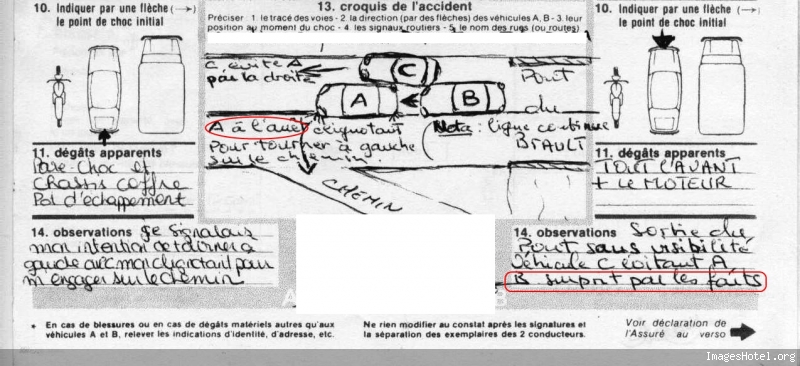 10. Indiquer par une flèche (→)
le point de choc initial
13. croquis de l'accident
Préciser : 1. le tracé des voies - 2. la direction (par des flèches) des véhicules A, B - 3. leur
position au moment du choc - 4. les signaux routiers - 5. le nom des rues (ou routes)
10. Indiquer par une flèche (→)
le point de choc initial
C évite A
par la droite
C
A
B
Pont
du
BRAULT
A à l'arrêt clignotant
Pour tourner à gauche
sur le chemin.
Nota : ligne continue
CHEMIN
11. dégâts apparents
Pare-Choc et
Chassis Coffre
Pot d'échappement
11. dégâts apparents
TOUT L'AVANT
+ LE MOTEUR
14. observations Je Signalais
mon intention de tourner à
gauche avec mon clignotant pour
m'engager sur le chemin
14. observations Sortie du
Pont sans visibilité
Véhicule C évitant A
B surprit par les faits
* En cas de blessures ou en cas de dégâts matériels autres qu'aux
véhicules A et B, relever les indications d'identité, d'adresse, etc.
Ne rien modifier au constat après les signatures et
la séparation des exemplaires des 2 conducteurs.
Voir déclaration de
l'Assuré au verso
ImagesHotel.org